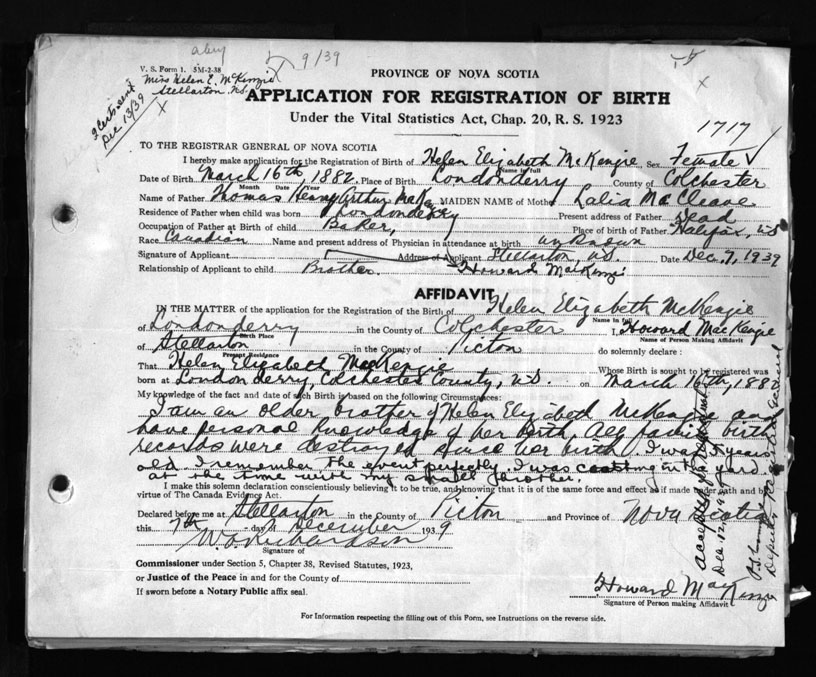 9/39
V. S. Form 1. 5M-2-38
Miss Helen E. McKenzie
Stellarton N.S.
2 Certs sent
Dec 13/39
PROVINCE OF NOVA SCOTIA
APPLICATION FOR REGISTRATION OF BIRTH
Under the Vital Statistics Act, Chap. 20, R. S. 1923
1717
TO THE REGISTRAR GENERAL OF NOVA SCOTIA
I hereby make application for the Registration of Birth of Helen Elizabeth McKenzie Sex Female
Name in full
Date of Birth March 16th, 1882 Place of Birth Londonderry County of Colchester
Month Date Year
Name of Father Thomas Henry Arthur MAIDEN NAME of Mother Lalia
Residence of Father when child was born Londonderry Present address of Father Dead
Occupation of Father at Birth of child Baker, Place of birth of Father Halifax, N.S.
Race Canadian Name and present address of Physician in attendance at birth unknown
Signature of Applicant Address of Applicant Stellarton, N.S. Date Dec. 7, 1939
Relationship of Applicant to child Brother. Howard MacKenzie
AFFIDAVIT
IN THE MATTER of the application for the Registration of the Birth of Helen Elizabeth McKenzie
of Londonderry in the County of Colchester I, Howard MacKenzie
Birth Place Name of Person Making Affidavit
of Stellarton in the County of Pictou do solemnly declare:
Present Residence
That Helen Elizabeth MacKenzie Whose Birth is sought to be registered was
born at Londonderry, Colchester County, N.S. on March 16th, 1882
My knowledge of the fact and date of such Birth is based on the following Circumstances:
I am an older brother of Helen Elizabeth McKenzie and
have personal knowledge of her birth. All family birth
records were destroyed since her birth. I was 5 years
old. I remember the event perfectly. I was coasting in the yard
at the time with my small brother.
I make this solemn declaration conscientiously believing it to be true, and knowing that it is of the same force and effect as if made under oath and by
virtue of The Canada Evidence Act.
Declared before me at Stellarton in the County of Pictou and Province of Nova Scotia
this 7th day of December 1939
W. A. Richardson
Signature of
Commissioner under Section 5, Chapter 38, Revised Statutes, 1923,
or Justice of the Peace in and for the County of
If sworn before a Notary Public affix seal.
Howard MacKenzie
Signature of Person making Affidavit
For Information respecting the filling out of this Form, see Instructions on the reverse side.
Deputy Registrar General